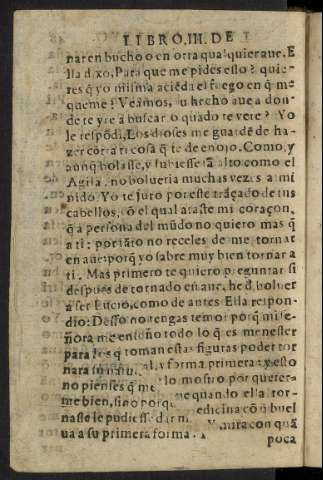 LIBRO. III. DE
nar en bucho o en otra qualquier aue. E
lla dixo, Para que me pides esto? quie-
res q̃ yo misma aciẽda el fuego en q̃ me
queme? Veamos, tu hecho aue a don-
de te yre a buscar o quãdo te vere? Yo
le respõdi, Los dioses me guardẽ de ha-
zer cõtra ti cosa q̃ te de enojo. Como, y
aunq̃ bolasse, y subiesse tã alto como el
Agila, no bolueria muchas vezes a mi
nido. Yo te juro por este trãçado de tus
cabellos, cõ el qual ataste mi coraçon,
q̃ a persona del mũdo no quiero mas q̃
a ti: por tãto no receles de me tornar
en aue: porq̃ yo sabre muy bien tornar a
ti. Mas primero te quiero preguntar si
despues de tornado en aue, he d̃ boluer
a ser Lucio, como de antes. Ella respon-
dio: Desso no tengas temor porq̃ mi se-
ñora me enseño todo lo q̃ es menester
para los q̃ toman estas figuras poder tor
nar a su natural, y forma primera: y esto
no pienses q̃ me lo mostro por querer-
me bien, sino porq̃ que quando ella tor-
nasse le pudiesse dar medicina cõ q̃ buel
ua a su primera forma. Y mira con quã
poca